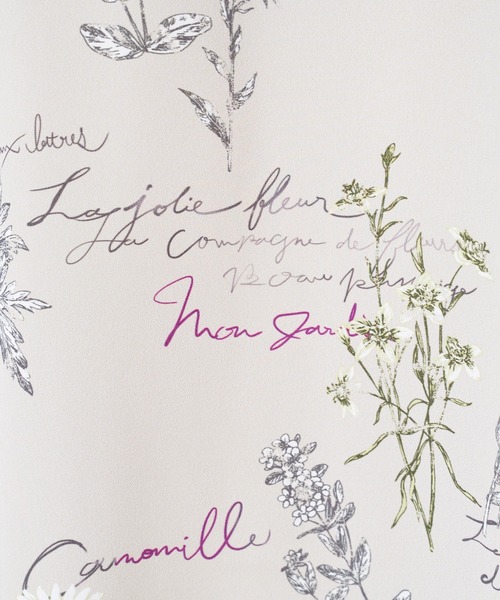 La jolie fleur
La Compagne de fleurs
Beau
Mon Jardi
Camomille